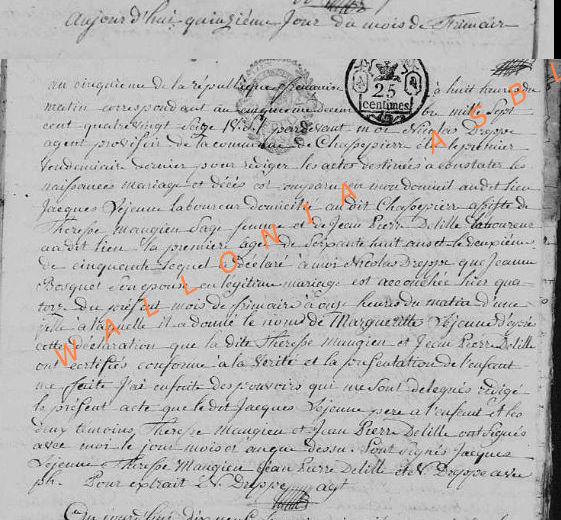 Aujourd'hui quinzième Jour du mois de frimaire
an cinquieme de la république française à huit heures du
matin correspondant au cinquieme decembre mille Sept
cent quatre vingt Seize V. St. pardevant moi Nicolas Dreppe
agent provisoir de la commune de Chaspepierre elu le premier
Vendemiaire dernier pour rediger les actes destinés à constater les
naissances mariage et décès est comparu en mon domicil audit lieu
Jacques Lejeune laboureur domicilié audit Chaspepierre assisté de
Therese Maugien Sage femme et de Jean Pierre Delille laboureur
audit lieu la premiere agée de Soixante huit ans et le deuxième
de cinquante lequel a déclaré à moi Nicolas Dreppe que Jeanne
Bosquet Son epouse en légitime mariage est accouchée hier qua-
torze du présent mois de frimaire à onze heures du matin d'une
fille à laquelle il a donné le nom de Margueritte Lejeune d'après
cette déclaration que la dite Therese Maugien et Jean Pierre Delille
ont certifiés conforme à la Vérité et la présentation de l'enfant
me faite J'ai ensuite des pouvoirs qui me sont delegués rédigé
le présent acte que le dit Jacques Lejeune pere à l'enfant et les
deux temoins Therese Maugien et Jean Pierre Delille ont Signés
avec moi le jour mois et an que dessus Sont Signés Jacques
Lejeune Therese Maugien Jean Pierre Delille et N Dreppe avec
ph. Pour extrait N Dreppe agt
25
centimes
WALLONIA ASBL